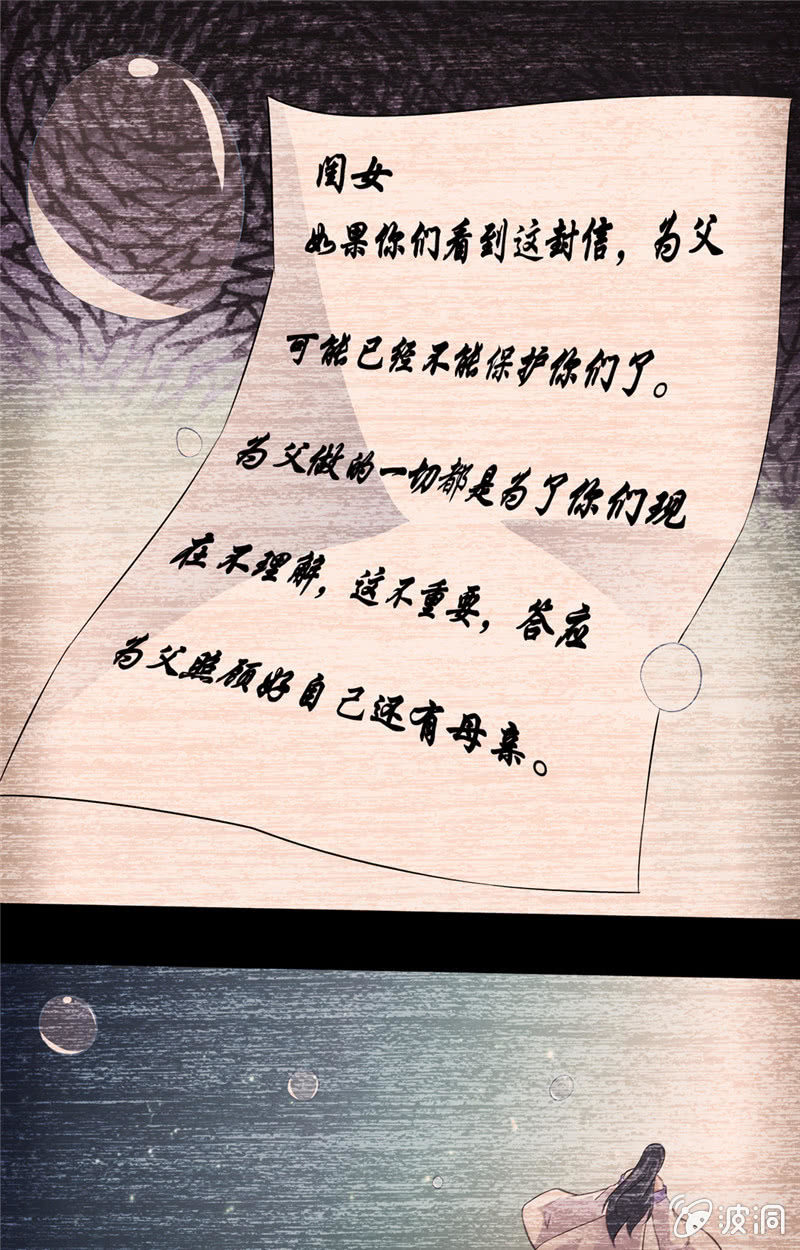 闺女
如果你们看到这封信，为父
可能已经不能保护你们了。
为父做的一切都是为了你们现
在不理解，这不重要，答应
为父照顾好自己还有母亲。
波洞